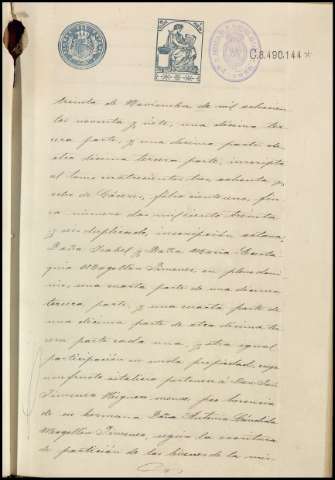 C.8.490.144*
treinta de Noviembre de mil ochocien-
tos noventa y siete, una décima ter-
cera parte, y una décima parte de
otra décima tercera parte, inscripta
al tomo cuatrocientos sesenta y
ocho de Cáceres, folio ciento uno, fin-
ca número dos mil ciento treinta
y un duplicado, inscripción octava.
Doña Isabel y Doña María
Mogollón Jimenez, en pleno domi-
nio, una cuarta parte de una décima
tercera parte, y una cuarta parte de
una décima parte de otra décima ter-
cera parte cada una, y otra igual
participación en nuda propiedad, cuyo
usufructo vitalicio pertenece á Don
Jimenez por herencia
de su hermana Doña Antonia
Mogollón Jimenez, según la escritura
de partición de los bienes de la mis-